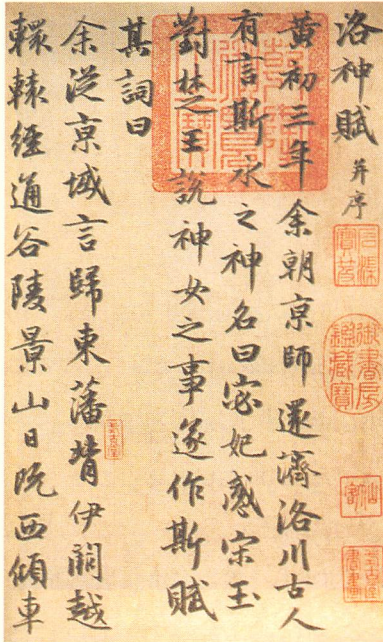 洛神賦 并序
黃初三年余朝京師還濟洛川古人
有言斯水之神名曰宓妃感宋玉
對楚王說神女之事遂作斯賦
其詞曰
余從京域言歸東藩背伊闕越
轘轅經通谷陵景山日既西傾車
石渠寶笈
御書房鑑藏寶